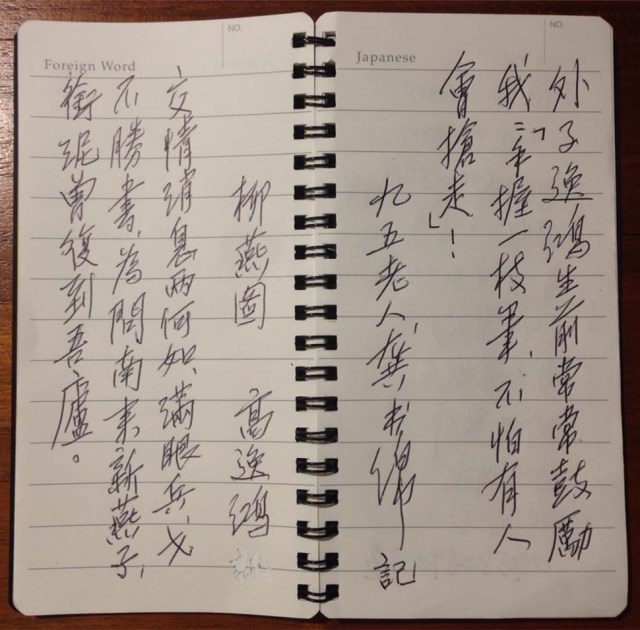 Japanese
NO.
外子逸鴻生前常常鼓勵
我:「手握一枝筆,不怕有人
會搶走」!
九五老人龔書綿 記
Foreign Word
NO.
柳燕圖 高逸鴻
交情消息兩何如,滿眼兵戈
不勝書,為問南來新燕子,
銜泥曾復到吾廬。